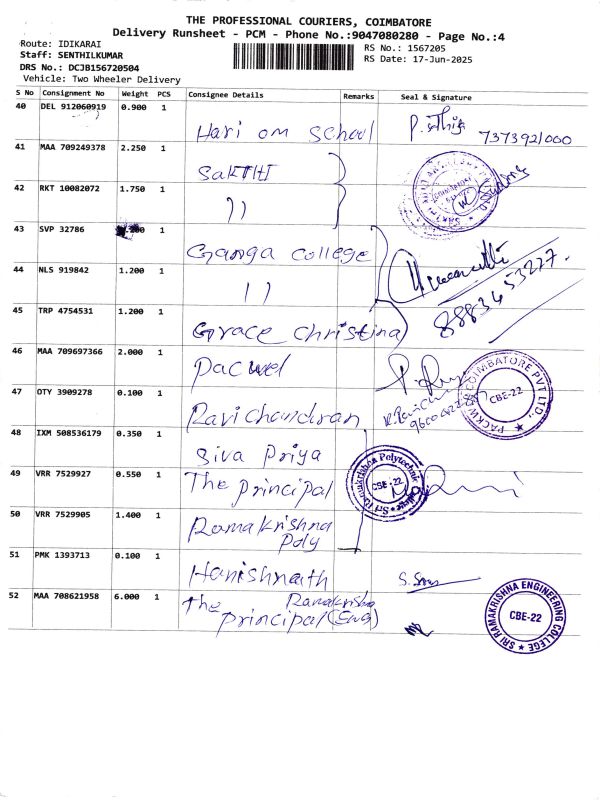 THE PROFESSIONAL COURIERS, COIMBATORE
Delivery Runsheet - PCM - Phone No.:9047080280 - Page No.:4
Route: IDIKARAI
Staff: SENTHILKUMAR
RS No.: 1567205
DRS No.: DCJB156720504
RS Date: 17-Jun-2025
Vehicle: Two Wheeler Delivery
S No Consignment No Weight PCS Consignee Details Remarks Seal & Signature
40 DEL 912060919 0.900 1
Hari om School
7373921000
41 MAA 709249378 2.250 1
SAKTHI
42 RKT 10082072 1.750 1
))
43 SVP 32786 1
Ganga college
44 NLS 919842 1.200 1
))
8883453227
45 TRP 4754531 1.200 1
Grace Christina
46 MAA 709697366 2.000 1
Pacwel
COIMBATORE PVT LTD.,
CBE-22
47 OTY 3909278 0.100 1
Ravichandran
48 IXM 508536179 0.350 1
Siva Priya
49 VRR 7529927 0.550 1
The Principal
Sri Ramakrishna Polytechnic College
CBE-22
50 VRR 7529905 1.400 1
Ramakrishna
Poly
51 PMK 1393713 0.100 1
Harishnath
52 MAA 708621958 6.000 1
The Ramakrishna
Principal (Eng)
SRI RAMAKRISHNA ENGINEERING COLLEGE
CBE-22